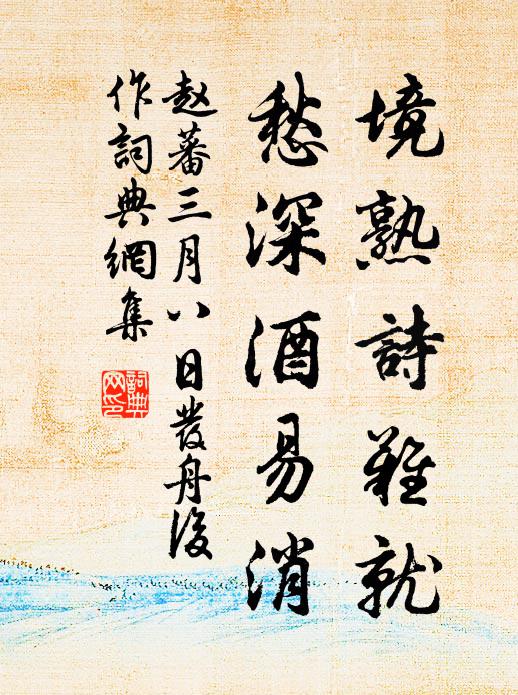 境熟詩難就
愁深酒易消
赵蕃三月八日發舟後
作詞典網集
詞典
网印